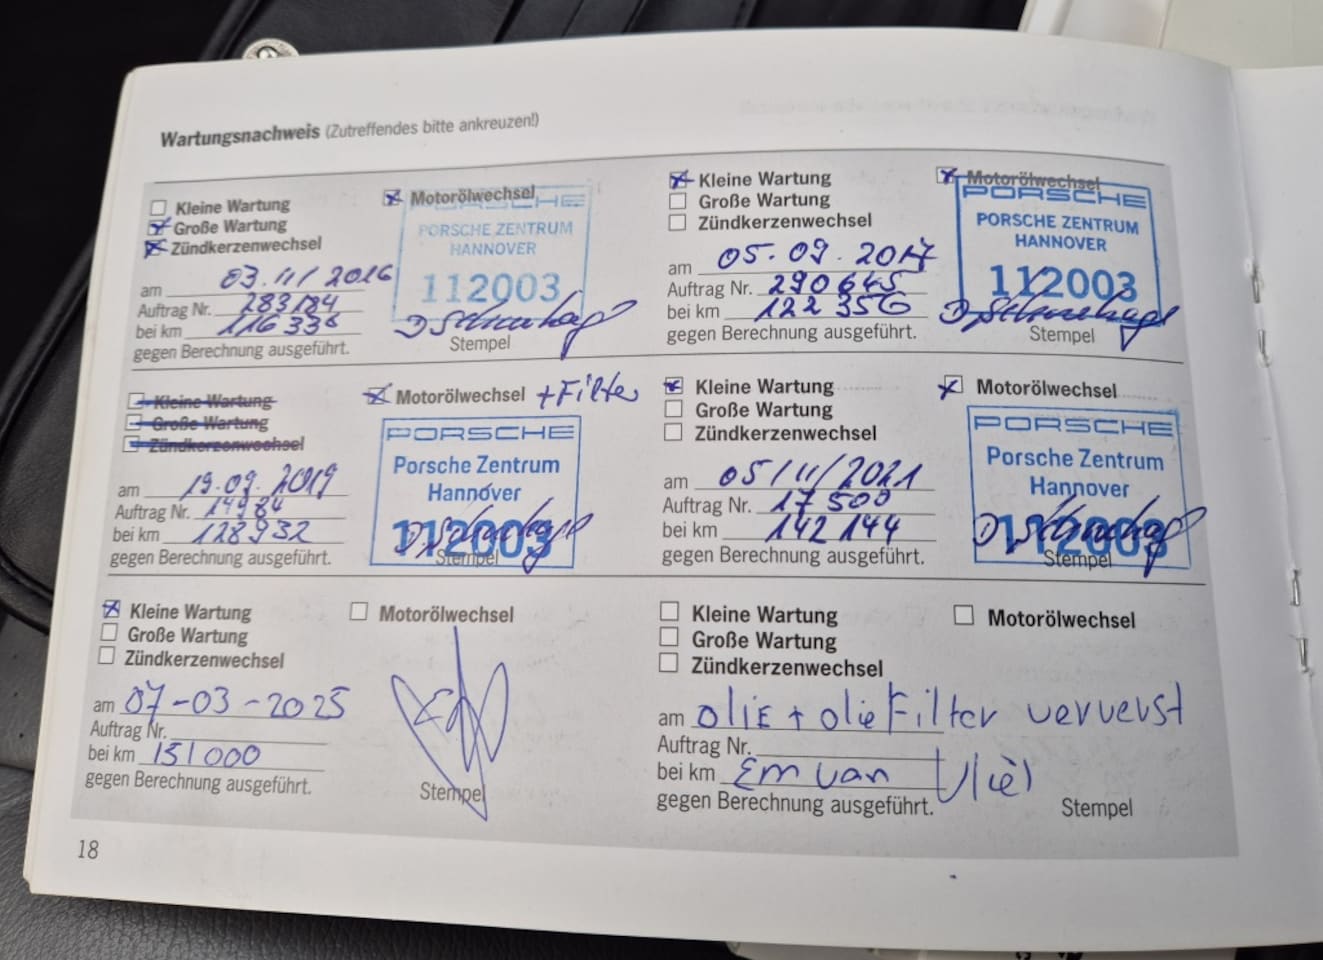 Wartungsnachweis (Zutreffendes bitte ankreuzen!)
Kleine Wartung
Große Wartung
Zündkerzenwechsel
Motorölwechsel
am 03.11/2016
Auftrag Nr. 283184
bei km 116338
gegen Berechnung ausgeführt.
PORSCHE
PORSCHE ZENTRUM
HANNOVER
112003
Stempel
Kleine Wartung
Große Wartung
Zündkerzenwechsel
Motorölwechsel
am 05.09.2017
Auftrag Nr. 290645
bei km 122356
gegen Berechnung ausgeführt.
PORSCHE
PORSCHE ZENTRUM
HANNOVER
112003
Stempel
Kleine Wartung
Große Wartung
Zündkerzenwechsel
Motorölwechsel +Filter
am 19.09.2019
Auftrag Nr. 14984
bei km 128932
gegen Berechnung ausgeführt.
PORSCHE
Porsche Zentrum
Hannover
112003
Stempel
Kleine Wartung
Große Wartung
Zündkerzenwechsel
Motorölwechsel
am 05/11/2021
Auftrag Nr. 17500
bei km 142144
gegen Berechnung ausgeführt.
PORSCHE
Porsche Zentrum
Hannover
112003
Stempel
Kleine Wartung
Große Wartung
Zündkerzenwechsel
Motorölwechsel
am 07-03-2025
Auftrag Nr.
bei km 151000
gegen Berechnung ausgeführt.
Stempel
Kleine Wartung
Große Wartung
Zündkerzenwechsel
Motorölwechsel
am olie + olie Filter ververst
Auftrag Nr.
bei km Em van
gegen Berechnung ausgeführt.
Stempel
18